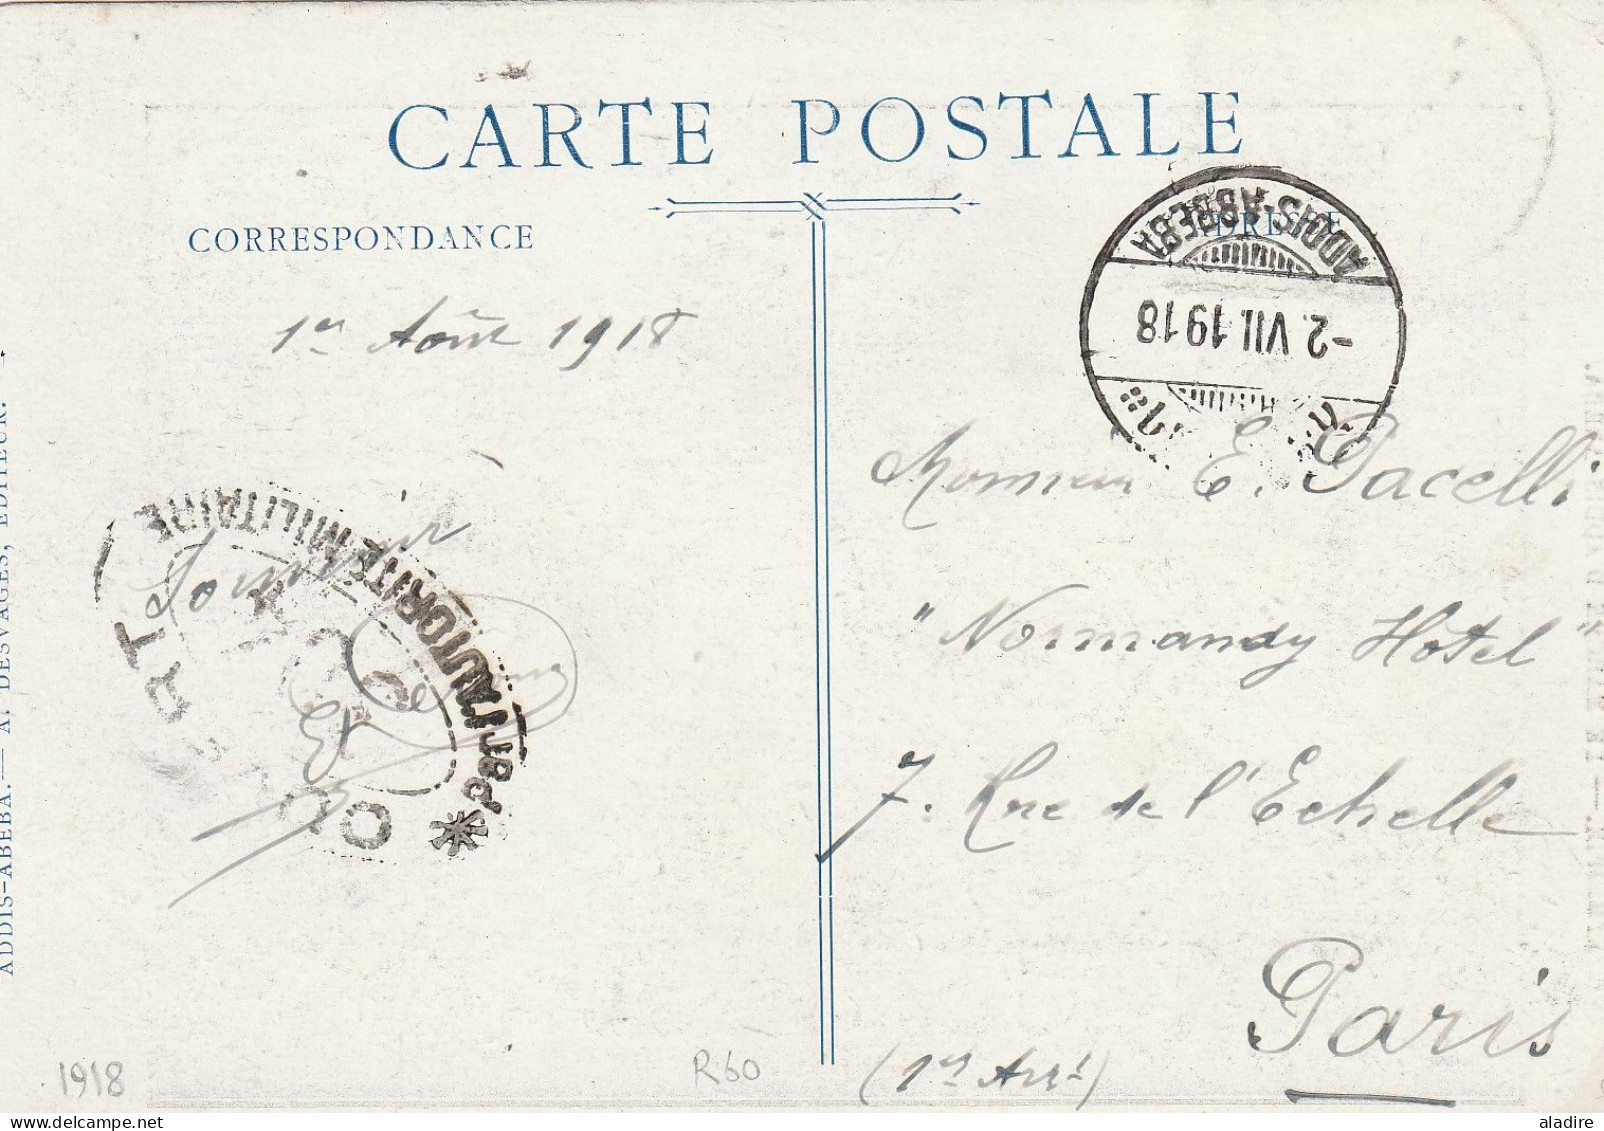 CARTE POSTALE
CORRESPONDANCE
ADRESSE
ADDIS-ABEBA
-2.VII.1918
1er Août 1918
Monsieur E. Pacelli
"Normandy Hotel"
7. Rue de l'Echelle
Paris
(1er Arrt)
Souvenir
OUVERT
PAR L'AUTORITÉ MILITAIRE
ADDIS-ABEBA. — A. DESVAGES, EDITEUR.
1918
R60
aladire